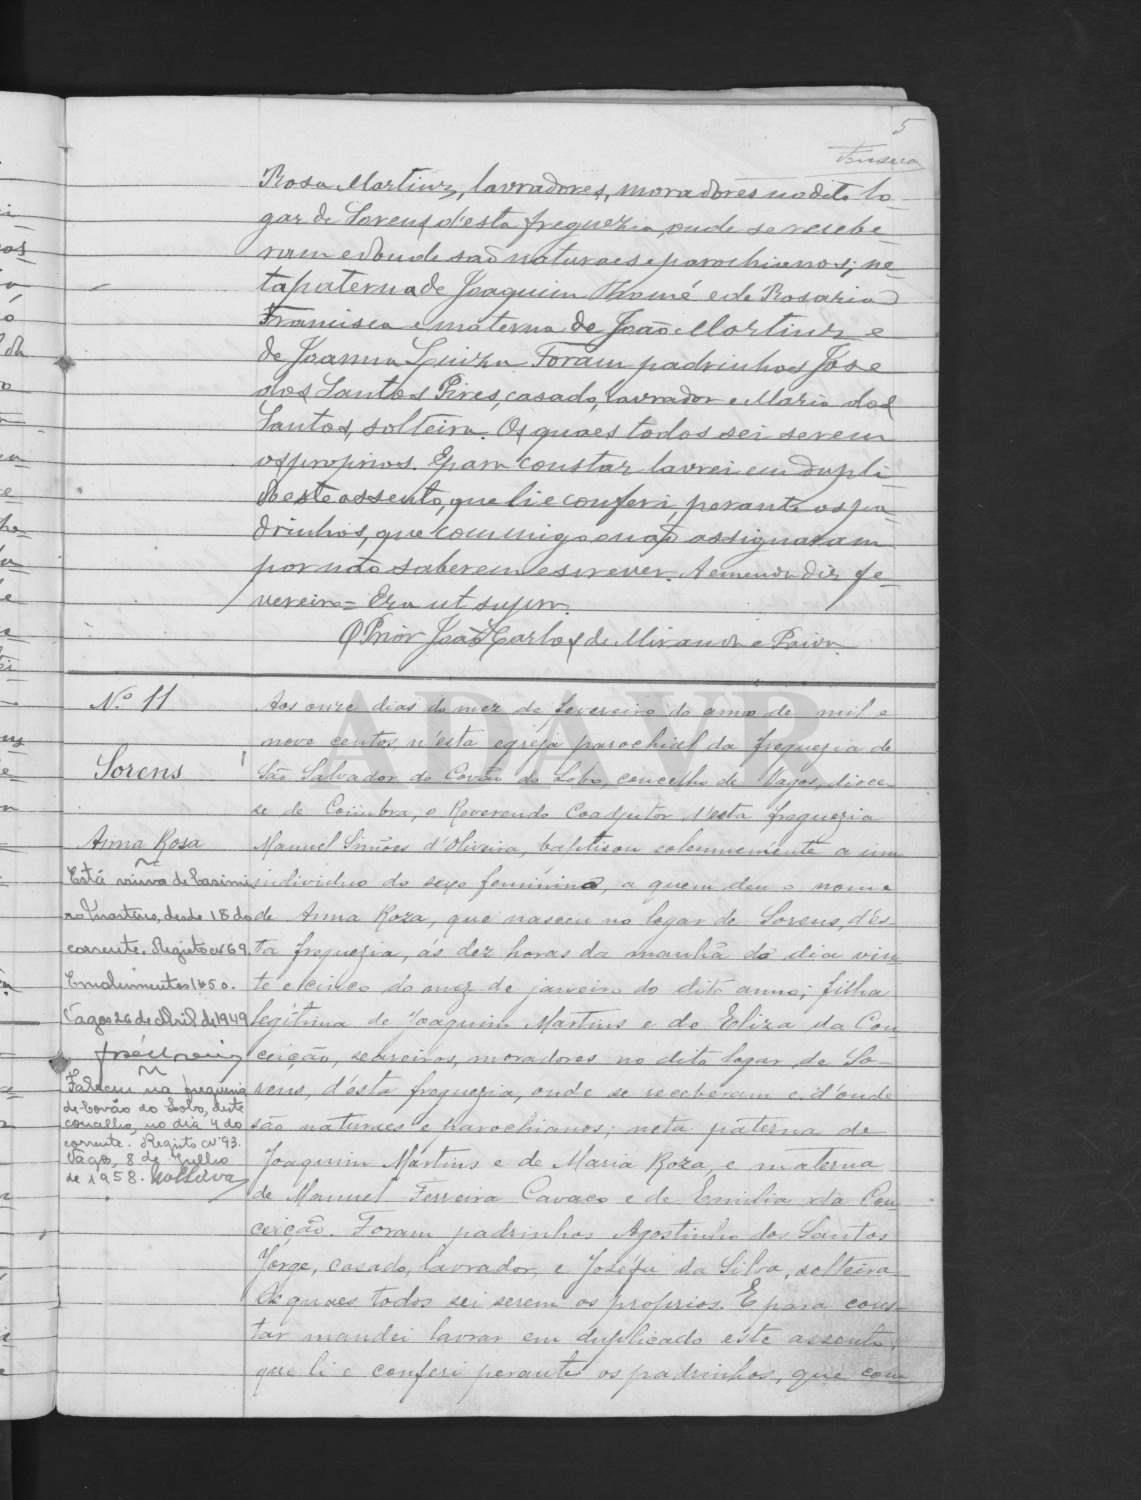 5
Rosa Martins, lavradores, moradores no dito lo-
gar de Sorens d'esta freguezia, onde se recebe-
ram e donde são naturaes e parochianos; ne-
ta paterna de Joaquim Thomé e de Rosaria
Francisca e materna de João Martins e
de Joanna Luiza. Foram padrinhos José
dos Santos Pires, casado, lavrador e Maria dos
Santos, solteira. Os quaes todos sei serem
os proprios. E para constar lavrei em dupli-
do este assento, que li e conferi, perante os pa-
drinhos, que commigo não assignaram
por não saberem escrever. A emenda diz fe-
vereiro = Era ut supra.
O Prior João Carlos de Miranda e Paiva.
N.º 11
Sorens
Anna Rosa
Está viuva de Casimi
ro Martins, desde 18 do
corrente. Registo nº 69.
Emolumentos 1$50.
Vagos 26 de Abril de 1949
Faleceu na freguesia
de Covão do Lobo, deste
concelho, no dia 4 do
corrente. Registo Nº 93.
Vagos, 8 de Julho
de 1958.
Aos onze dias do mez de fevereiro do anno de mil e
nove centos, n'esta egreja parochial da freguezia de
São Salvador do Covão do Lobo, concelho de Vagos, dioce-
se de Coimbra, o Reverendo Coadjutor d'esta freguezia
Manuel Simões d'Oliveira, baptisou solemnemente a um
individuo do sexo feminino, a quem deu o nome
de Anna Roza, que nasceu no logar de Sorens, d'es-
ta freguezia, ás dez horas da manhã do dia vin-
te e cinco do mez de janeiro do dito anno; filha
legitima de Joaquim Martins e de Eliza da Con-
ceição, seareiros, moradores no dito logar de So-
rens, d'esta freguezia, onde se receberam e d'onde
são naturaes e parochianos; neta paterna de
Joaquim Martins e de Maria Roza, e materna
de Manuel Ferreira Cavaco e de Emilia da Con-
ceição. Foram padrinhos Agostinho dos Santos
Jorge, casado, lavrador, e Joséfa da Silva, solteira
Os quaes todos sei serem os proprios. E para cons-
tar mandei lavrar em duplicado este assento,
que li e conferi perante os padrinhos, que com
ADAVR